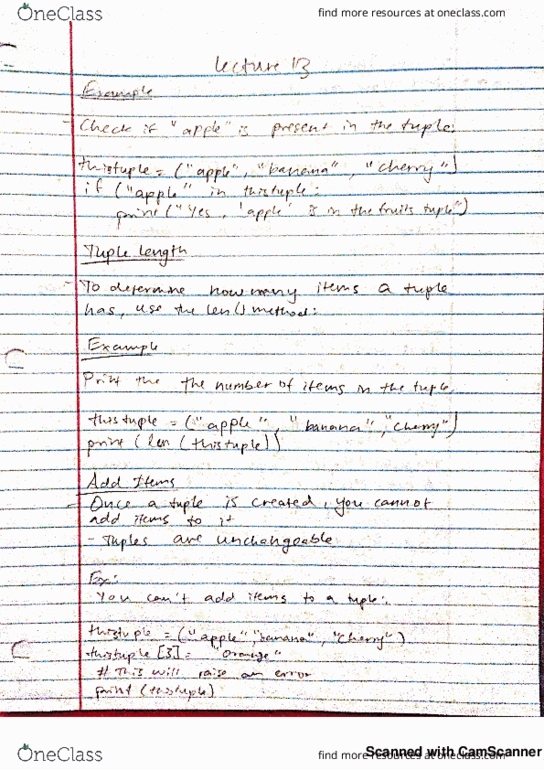 OneClass
find more resources at oneclass.com
lecture 13
Example
Check if "apple" is present in the tuple:
thistuple = ("apple", "banana", "cherry")
if ("apple" in thistuple:
print ("Yes, 'apple' is in the fruits tuple")
Tuple length
To determine how many items a tuple
has, use the len() method:
Example
Print the the number of items in the tuple
thistuple = ("apple", "banana", "cherry")
print (len (thistuple))
Add Items
Once a tuple is created, you cannot
add items to it
- Tuples are unchangeable
Ex:
You can't add items to a tuple:
thistuple = ("apple", "banana", "cherry")
thistuple [3] = "orange"
# This will raise an error
print (thistuple)
OneClass
find more resources at oneclass.com
Scanned with CamScanner